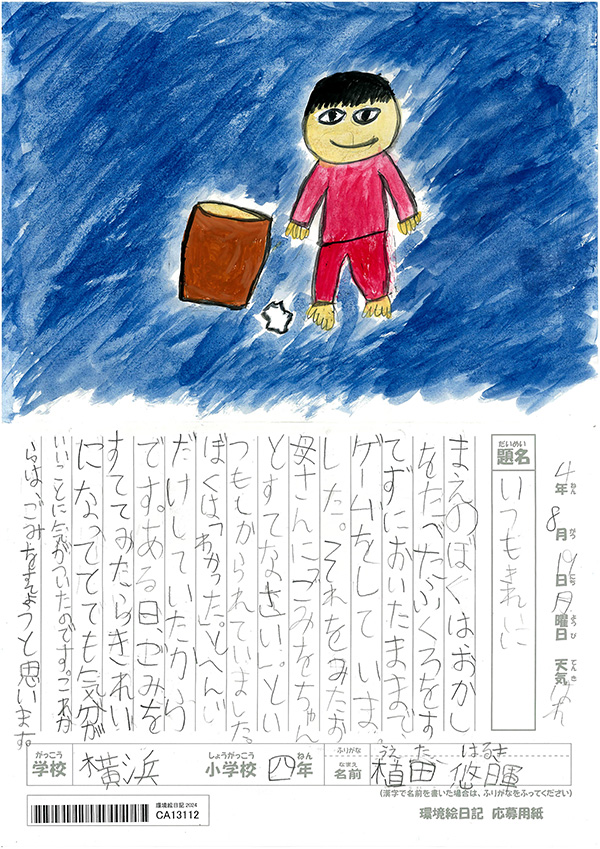 4年8月19日月曜日 天気 はれ
ねん がつ にち ようび てんき
だいめい
題名 いつもきれいに
まえのぼくはおかし
をたべたふくろをす
てずにおいたままで、
ゲームをしていま
した。それをみたお
母さんに「ごみをちゃん
とすてなさい」とい
つもしかられていました。
ぼくは「わかった。」とへんじ
だけしていたから
です。ある日、ごみを
すててみたらきれい
になっててても気分が
いいことに気がついたのです。これか
らは、ごみをすてようと思います。
がっこう しょうがっこう ねん ふりがな うえ だ はるき
学校 横浜 小学校 四年 なまえ 名前 植田 悠暉
(漢字で名前を書いた場合は、ふりがなをふってください)
環境絵日記2024
CA13112
環境絵日記 応募用紙